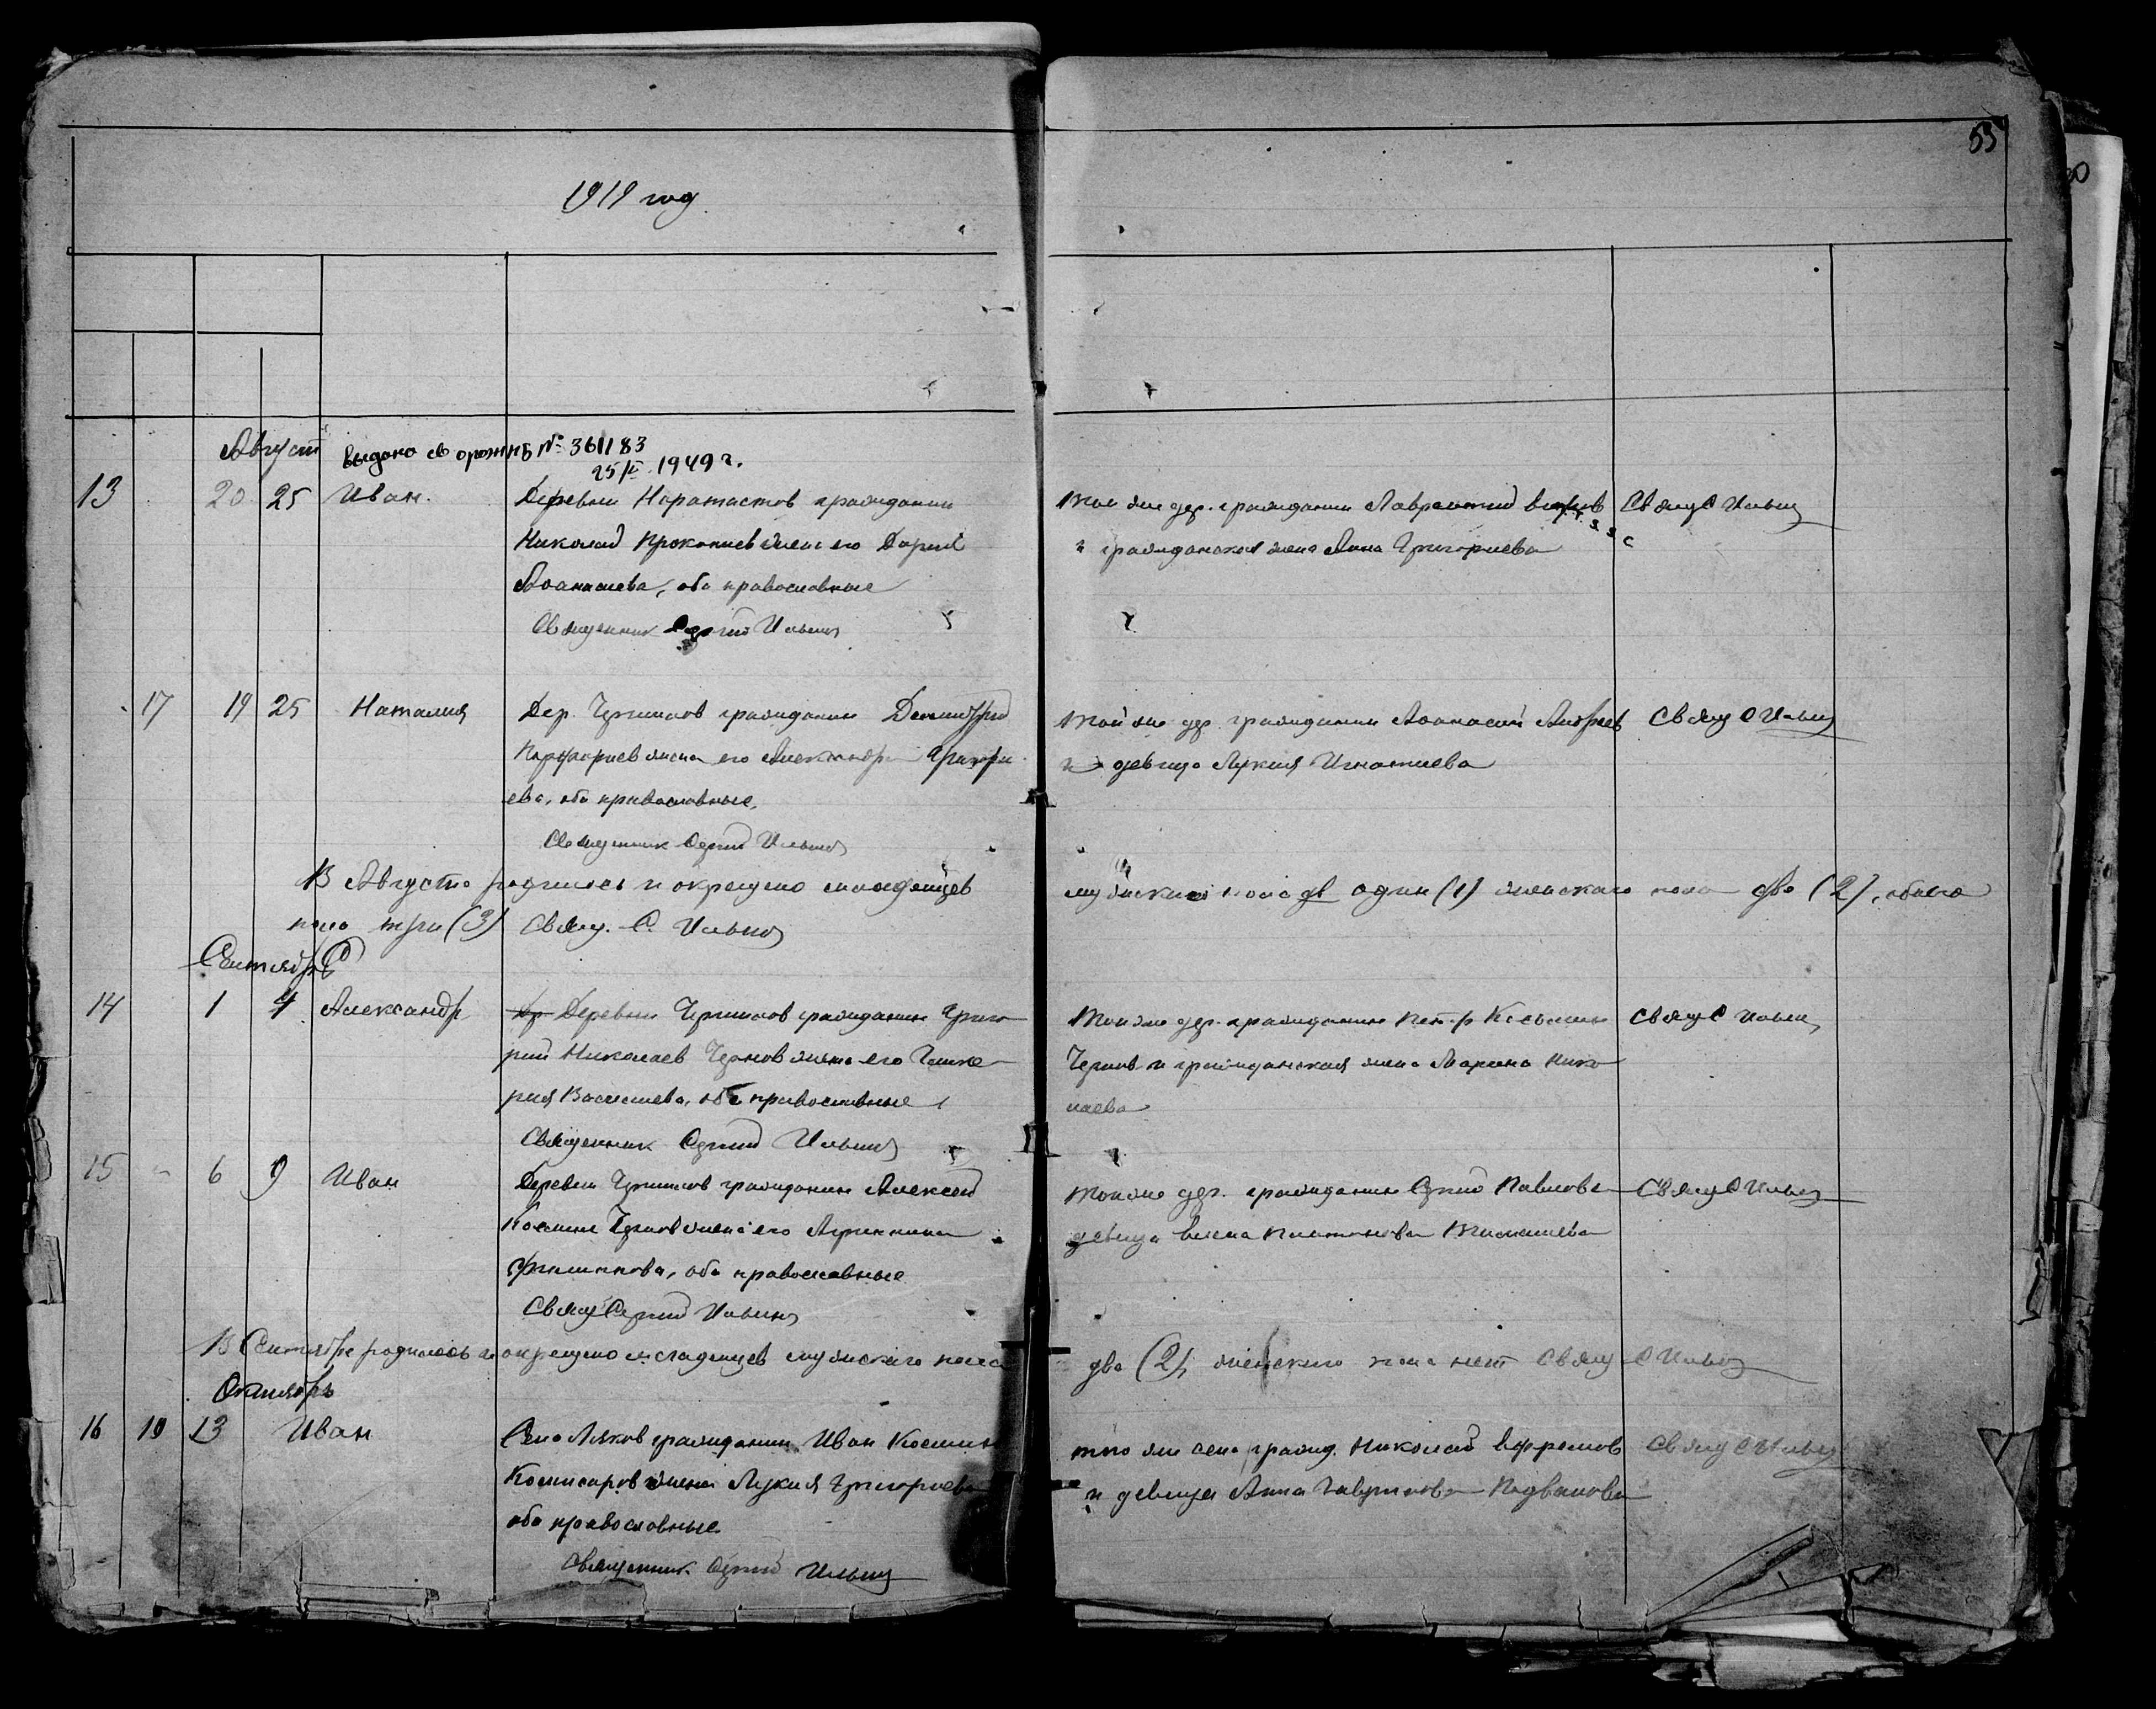 53
1919 год
Август
выдано св о рожн № 361183
25/II 1949 г.
13 20 25 Иван.
Деревни граждании
Николай Прокопиев жена его Дария
Афанасиева, оба православные
Священник Сергий Ильин
Той же дер. гражданин Лаврентий Свящ С Ильин
и гражданская жена Анна Григориева
17 19 25 Наталия
Дер. гражданин Димитрий
Порфириев жена его Александра Григори
ева, оба православные.
Священник Сергий Ильин
Той же дер. гражданин Афанасий Андреев Свящ С Ильин
и девица Лукия Игнатиева
В Августе родилось и окрещено младенцев
мужскаго пола дв один (1) женскаго пола два (2), обоего
пола три (3) Свящ. С. Ильин
Сентябрь
14 1 4 Александр
Др Деревни гражданин Григо
рий Николаев Чернов жена его Глике
рия Василиева, оба православные
Священник Сергий Ильин
Той же дер. гражданин Петр Косьмин Свящ С Ильин
Чернов и гражданская жена Марина Нико
лаева
15 - 6 9 Иван
Деревни гражданин Алексей
Косьмин Чернов жена его Агриппина
Филиппова, оба православные
Свящ Сергий Ильин
Той же дер. гражданин Сергий Павлов Свящ С Ильин
девица Елена Платонова
В Сентябре родилось и окрещено младенцев мужскаго пола
два (2), женскаго пола нет Свящ С Ильин
Октябрь
16 10 13 Иван
Села гражданин Иван Косьмин
Комисаров жена Лукия Григориева
оба православные
Священник Сергий Ильин
того же села гражд. Николай Ефремов Свящ С Ильин
и девица Анна Гаврилова